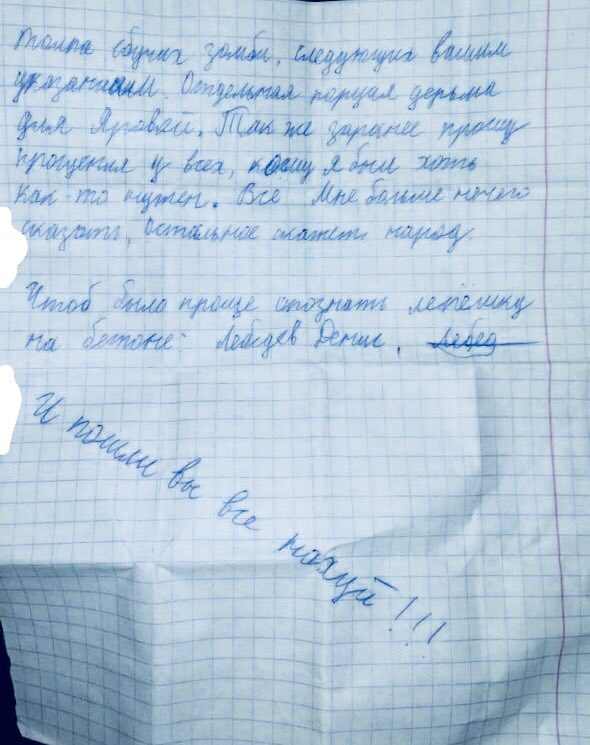 толпа ебучих зомби, следующих вашим
указаниям. Отдельная порция дерьма
для Яровой. Так же заранее прошу
прощения у всех, кому я был хоть
как-то нужен. Все Мне больше нечего
сказать, остальное скажет народ.
Чтоб было проще опознать лепёшку
на бетоне: Лебедев Денис. Лебед
И пошли вы все нахуй!!!